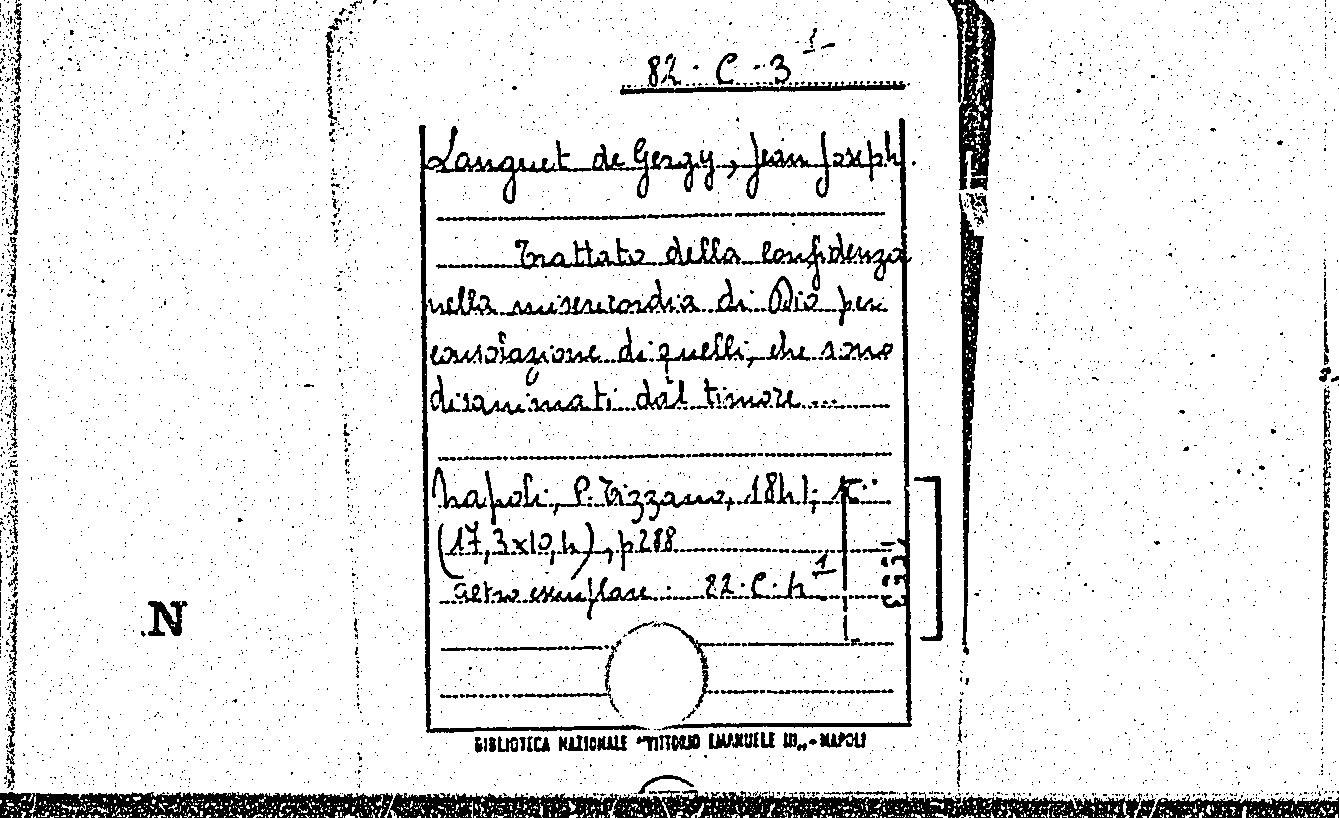 82 · C · 3 1
Languet de Gergy, Jean Joseph.
Trattato della confidenza
nella misericordia di Dio per
consolazione di quelli, che sono
disanimati dal timore ...
Napoli, P. Tizzano, 1841;
(17,3x10,4), p 288
altro esemplare : 82·C·4 1
N
BIBLIOTECA NAZIONALE "VITTORIO EMANUELE III„ - NAPOLI